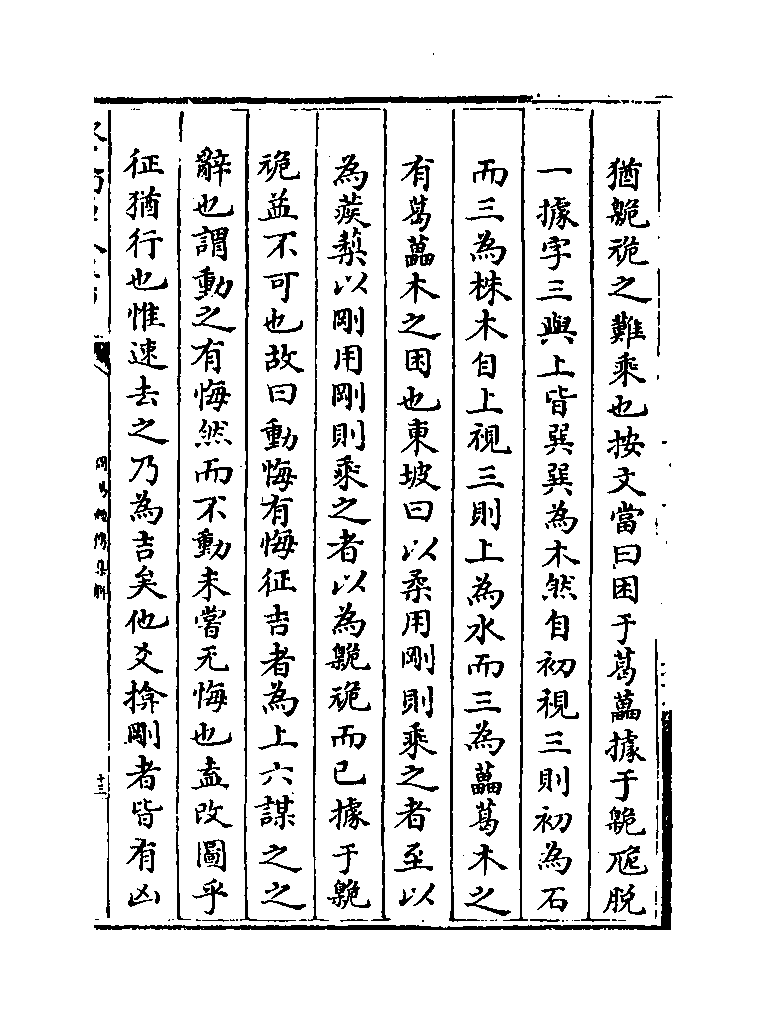 猶臲卼之難乘也按文當曰困于葛藟據于臲卼脫
一據字三與上皆巽巽為木然自初視三則初為石
而三為株木自上視三則上為水而三為藟葛木之
有葛藟木之困也東坡曰以柔用剛則乘之者至以
為蒺藜以剛用剛則乘之者以為臲卼而已據于臲
卼益不可也故曰動悔有悔征吉者為上六謀之之
辭也謂動之有悔然而不動未嘗无悔也盍改圖乎
征猶行也惟速去之乃為吉矣他爻揜剛者皆有凶
十三